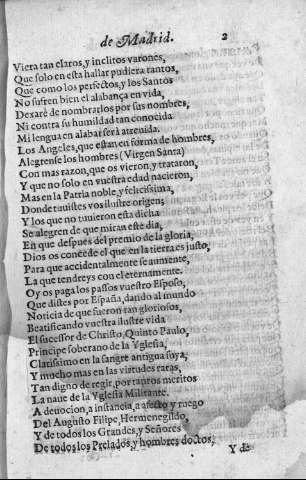 de Madrid. 2
Viera tan claros, y inclitos varones,
Que solo en esta hallar pudiera tantos,
Que como los perfectos, y los Santos
No sufren bien el alabança en vida,
Dexarè de nombrarlos por sus nombres,
Ni contra su humildad tan conocida
Mi lengua en alabar serà atreuida.
Los Angeles, que estan en forma de hombres,
Alegrense los hombres (Virgen Santa)
Con mas razon, que os vieron, y trataron,
Y que no solo en vuestra edad nacieron,
Mas en la Patria noble, y felicissima,
Donde tuuistes vos ilustre origen;
Y los que no tuuieron esta dicha
Se alegren de que miran este dia,
En que despues del premio de la gloria,
Dios os concede el que en la tierra es justo,
Para que accidentalmente se aumente,
La que tendreys con el eternamente.
Oy os paga los passos vuestro Esposo,
Que distes por España, dando al mundo
Noticia de que fueron tan gloriosos,
Beatificando vuestra ilustre vida
El sucessor de Christo, Quinto Paulo,
Principe soberano de la Yglesia,
Clarissimo en la sangre antigua suya,
Y mucho mas en las virtudes raras,
Tan digno de regir, por tantos meritos
La naue de la Yglesia Militante.
A deuocion, a instancia, a afecto y ruego
Del Augusto Filipe, Hermenegildo,
Y de todos los Grandes, y Señores
De todos los Prelados, y hombres doctos,
Y de